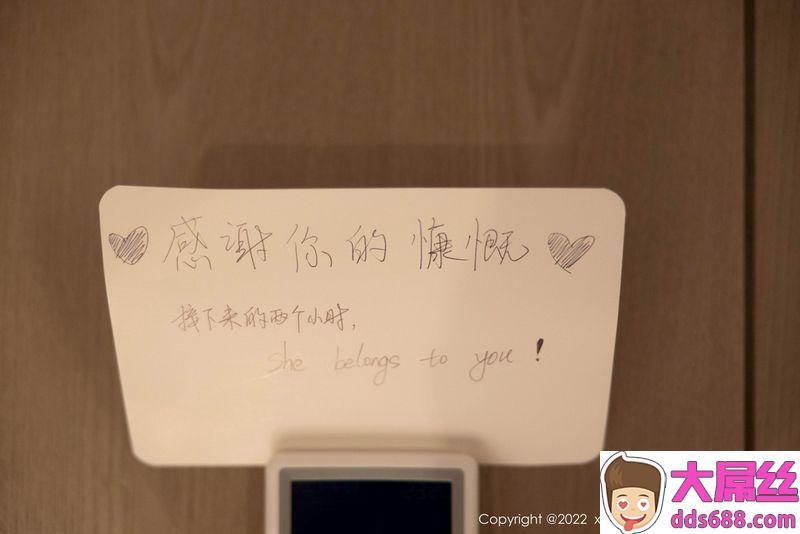 感谢你的慷慨
接下来的两个小时，
she belongs to you!
Copyright @2022 x
大屌丝
dds688.com